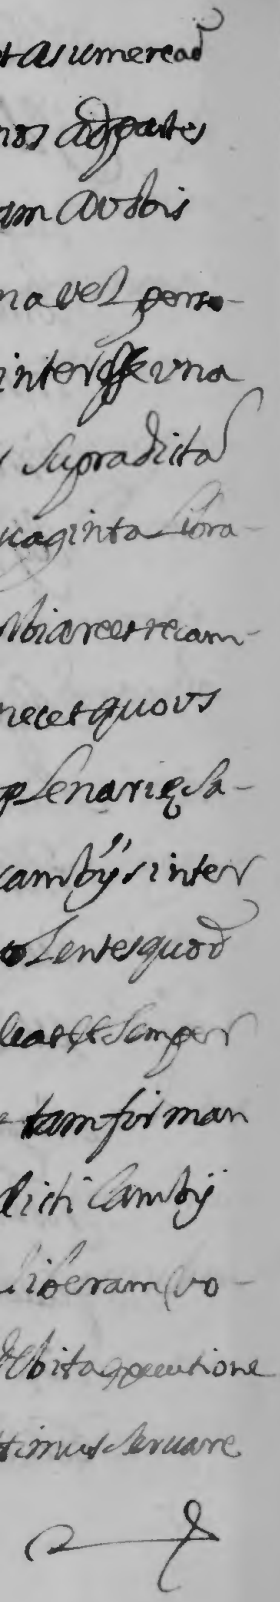 et asumere ad
nos ad partes
am a vobis
na vel perso-
inter esse una
supradicta
uaginta libra-
mbiare et recam-
nec et quovs
plenarie sa-
cambijs inter
volentes quod
leat et semper
tam firman
dicti Cambij
liberam vo-
debita executione
timus servare